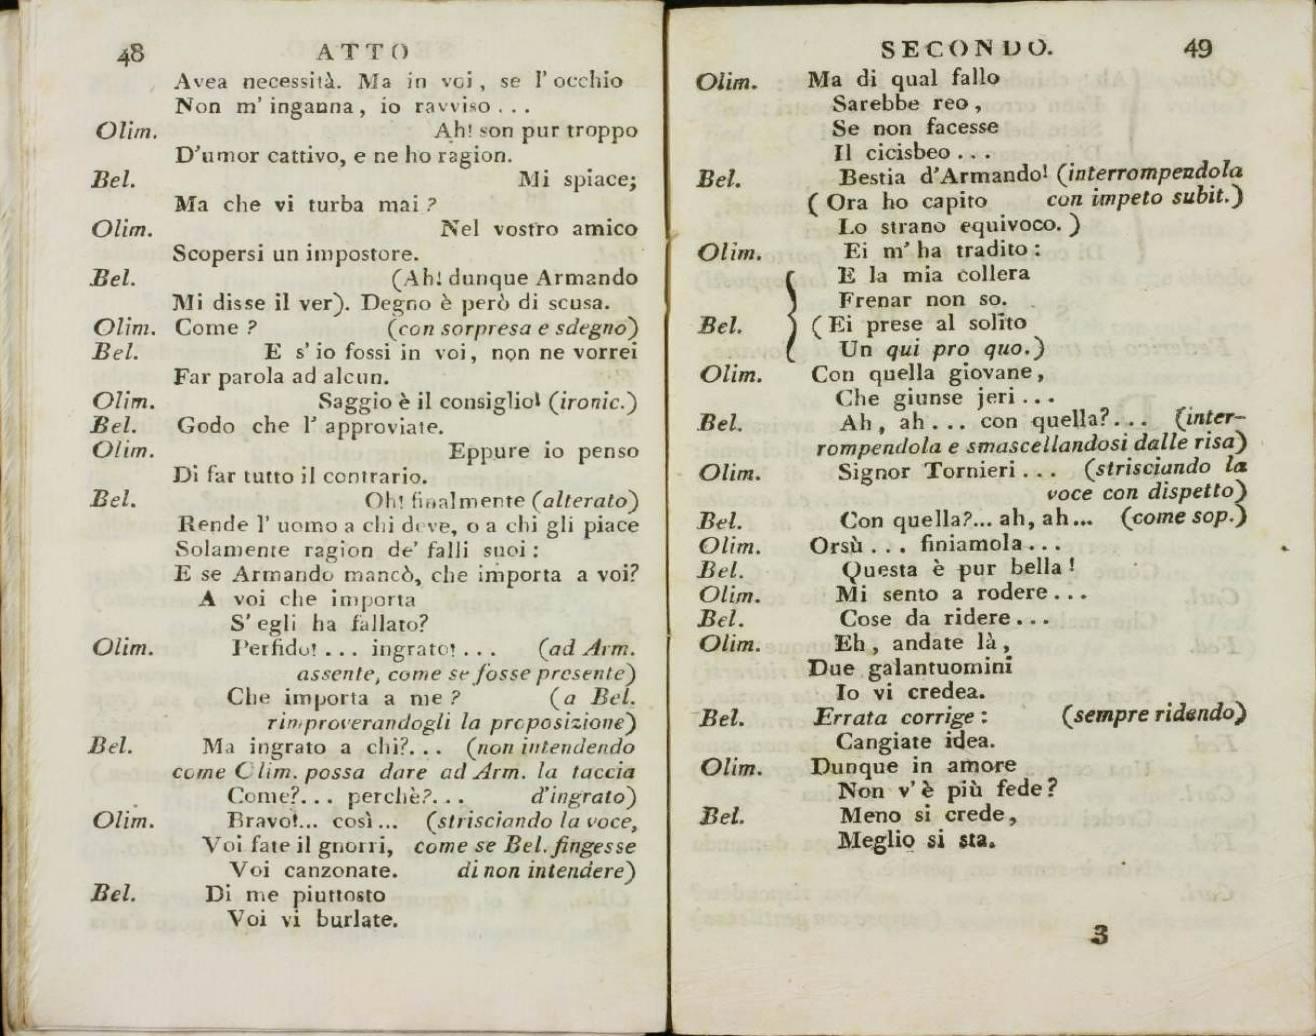 48 ATTO
Avea necessità. Ma in voi, se l'occhio
Non m'inganna, io ravviso...
Olim. Ah! son pur troppo
D'umor cattivo, e ne ho ragion.
Bel. Mi spiace;
Ma che vi turba mai?
Olim. Nel vostro amico
Scopersi un impostore.
Bel. (Ah! dunque Armando
Mi disse il ver). Degno è però di scusa.
Olim. Come? (con sorpresa e sdegno)
Bel. E s'io fossi in voi, non ne vorrei
Far parola ad alcun.
Olim. Saggio è il consiglio! (ironic.)
Bel. Godo che l'approviate.
Olim. Eppure io penso
Di far tutto il contrario.
Bel. Oh! finalmente (alterato)
Rende l'uomo a chi deve, o a chi gli piace
Solamente ragion de' falli suoi:
E se Armando mancò, che importa a voi?
A voi che importa
S'egli ha fallato?
Olim. Perfido!... ingrato!... (ad Arm.
assente, come se fosse presente)
Che importa a me? (a Bel.
rimproverandogli la proposizione)
Bel. Ma ingrato a chi?... (non intendendo
come Olim. possa dare ad Arm. la taccia
Come?... perchè?... d'ingrato)
Olim. Bravo!... così... (strisciando la voce,
Voi fate il gnorri, come se Bel. fingesse
Voi canzonate. di non intendere)
Bel. Di me piuttosto
Voi vi burlate.
SECONDO. 49
Olim. Ma di qual fallo
Sarebbe reo,
Se non facesse
Il cicisbeo...
Bel. Bestia d'Armando! (interrompendola
(Ora ho capito con impeto subit.)
Lo strano equivoco.)
Olim. Ei m'ha tradito:
E la mia collera
Frenar non so.
Bel. (Ei prese al solito
Un qui pro quo.)
Olim. Con quella giovane,
Che giunse jeri...
Bel. Ah, ah... con quella?... (inter-
rompendola e smascellandosi dalle risa)
Olim. Signor Tornieri... (strisciando la
voce con dispetto)
Bel. Con quella?... ah, ah... (come sop.)
Olim. Orsù... finiamola...
Bel. Questa è pur bella!
Olim. Mi sento a rodere...
Bel. Cose da ridere...
Olim. Eh, andate là,
Due galantuomini
Io vi credea.
Bel. Errata corrige: (sempre ridendo)
Cangiate idea.
Olim. Dunque in amore
Non v'è più fede?
Bel. Meno si crede,
Meglio si sta.
3